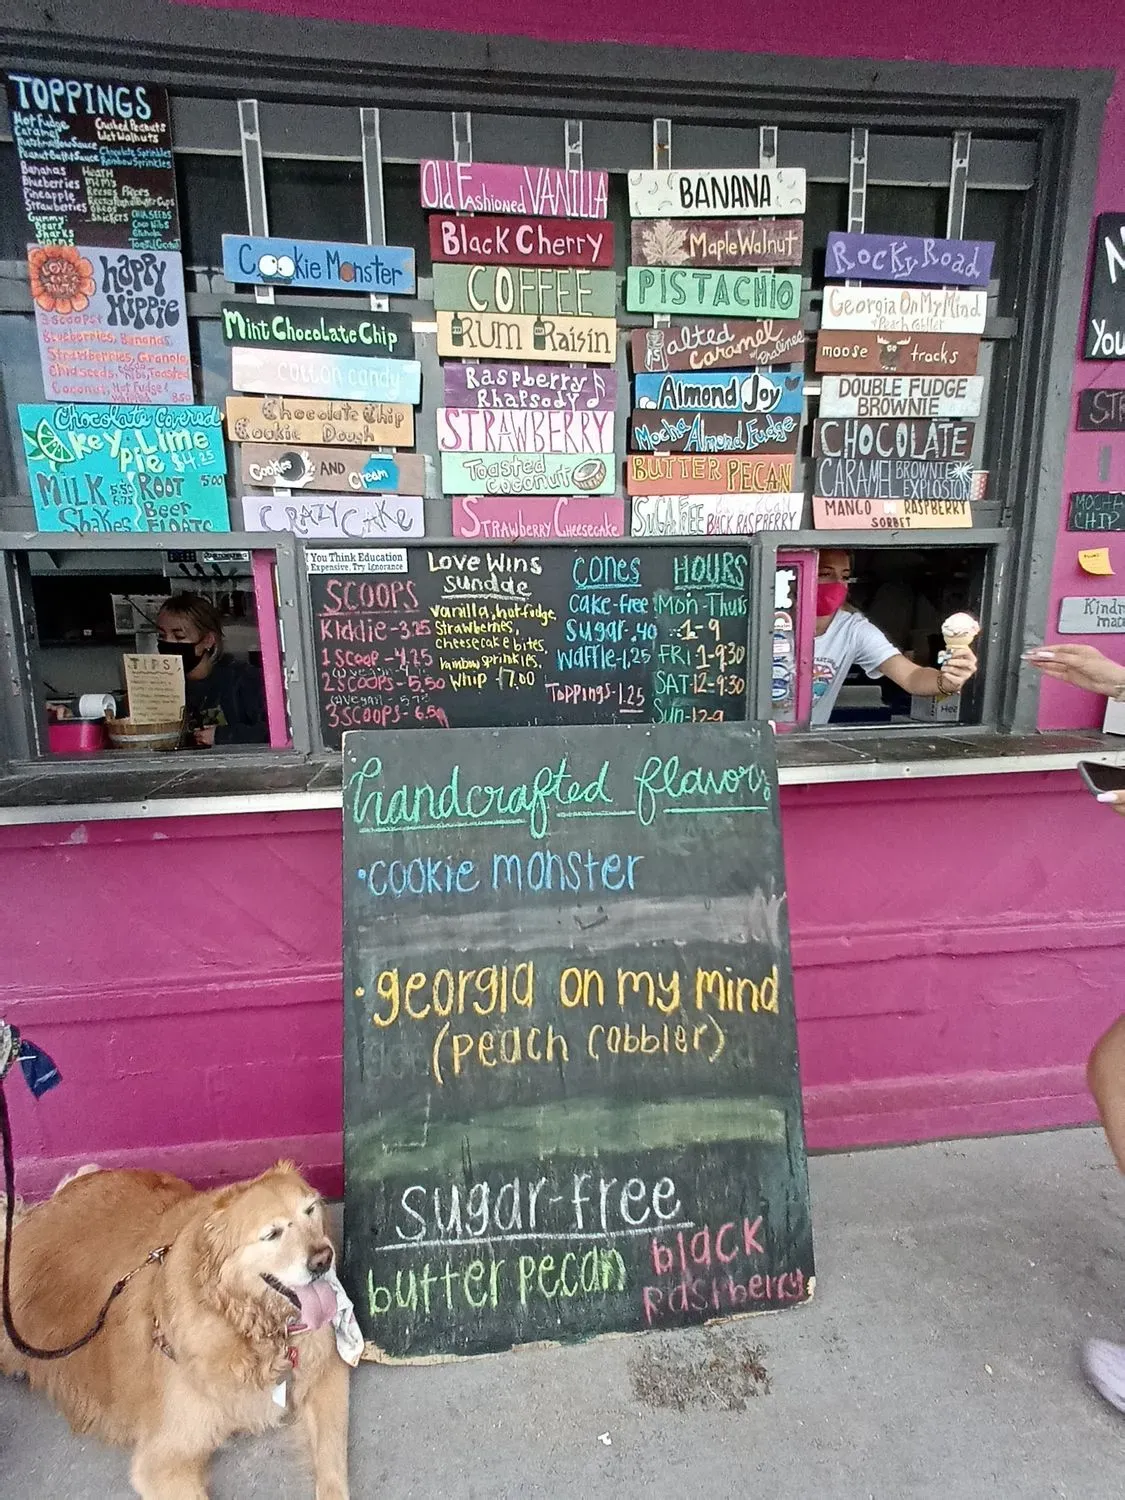 TOPPINGS
Hot Fudge
Caramel
Marshmallow Sauce
Peanut Butter Sauce
Bananas
Blueberries
Pineapple
Strawberries
Gummy:
Bears
Sharks
Worms
Crushed Peanuts
Wet Walnuts
Chocolate Sprinkles
Rainbow Sprinkles
Heath
M+M's
Reeses Pieces
Oreos
Snickers
CHIA SEEDS
happy
Hippie
3 scoops:
Blueberries, Bananas,
Strawberries, Granola,
Chia seeds, Toasted
Coconut, Hot Fudge &
8.50
Chocolate Covered
Key Lime
Pie $4.25
MILK
Shakes
ROOT 5.00
Beer
FLOATS
Cookie Monster
Mint Chocolate Chip
cotton candy
Chocolate Chip
Cookie Dough
Cookies AND Cream
CRAZY CAKE
Old Fashioned VANILLA
Black Cherry
COFFEE
RUM Raisin
Raspberry
Rhapsody
STRAWBERRY
Toasted
Coconut
Strawberry Cheesecake
BANANA
Maple Walnut
PISTACHIO
Salted
Caramel
Praline
Almond Joy
Mocha Almond Fudge
BUTTER PECAN
SUGAR FREE BLACK RASPBERRY
ROCKY ROAD
Georgia On My Mind
Peach Cobbler
moose tracks
DOUBLE FUDGE
BROWNIE
CHOCOLATE
CARAMEL BROWNIE
EXPLOSION
MANGO RASPBERRY
SORBET
If You Think Education
Expensive, Try Ignorance
SCOOPS
Kiddie-3.25
1 Scoop-4.25
2 SCOOPS-5.50
3 SCOOPS-6.5
LOVE WINS
sundae
vanilla, hot fudge,
strawberries,
cheesecake bites,
rainbow sprinkles,
whip -7.00
CONES
Cake-free
Sugar-.40
Waffle-1.25
TOPPINGS-1.25
HOURS
Mon-Thurs
1-9
FRI 1-9:30
SAT-12-9:30
Sun-12-9
TIPS
You
MOCHA
CHIP
handcrafted flavors
•cookie monster
•georgia on my mind
(peach cobbler)
sugar-free
butter pecan
black
raspberry